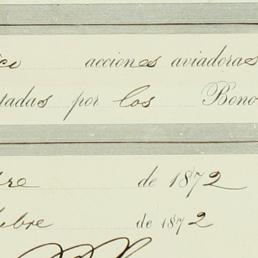 co acciones aviadoras
tadas por los Bono
bre de 1872
tubre de 1872